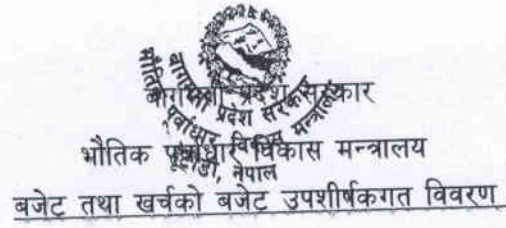 बागमती प्रदेश सरकार
भौतिक पूर्वाधार विकास मन्त्रालय
नेपाल
बजेट तथा खर्चको बजेट उपशीर्षकगत विवरण